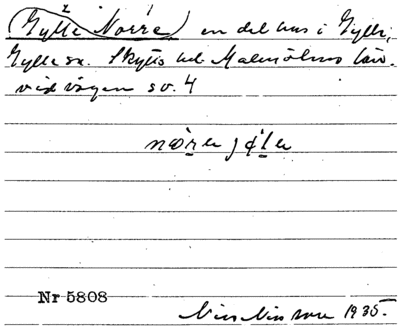 (Gylle Norra) en del hus i Gylle,
Gylle sn. Skytts hd Malmöhus län.
vid vägen so. 4
Nr 5808
Nils Nilsson 1935.